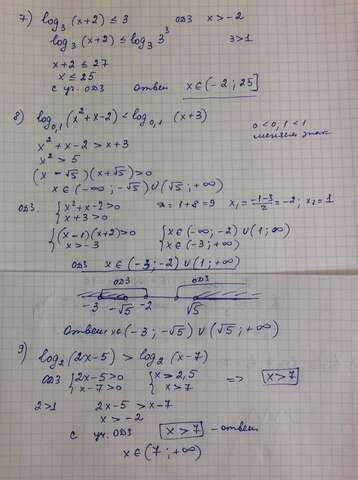 7) log₃ (x+2) ≤ 3   ОДЗ   x > -2
log₃ (x+2) ≤ log₃ 3³   3>1
x+2 ≤ 27
x ≤ 25
с уч. ОДЗ   Ответ   x∈(-2; 25]
8) log₀,₁ (x²+x-2) < log₀,₁ (x+3)
0<0,1<1
меняем знак
x²+x-2 > x+3
x² > 5
(x-√5)(x+√5)>0
x∈(-∞; -√5) ∪ (√5; +∞)
ОДЗ. { x²+x-2>0   D = 1+8=9   x₁ = (-1-3)/2 = -2; x₂=1
{ x+3>0
{ (x-1)(x+2)>0   { x∈(-∞; -2) ∪ (1; ∞)
{ x>-3   { x∈(-3; +∞)
ОДЗ   x∈(-3; -2) ∪ (1; +∞)
ОДЗ   ОДЗ
-3   -√5   -2   √5
Ответ x∈(-3; -√5) ∪ (√5; +∞)
9) log₂(2x-5) > log₂(x-7)
ОДЗ { 2x-5>0   { x>2,5   =>   x>7
{ x-7>0   { x>7
2>1   2x-5 > x-7
x > -2
с уч. ОДЗ   x>7 - ответ
x∈(7; +∞)